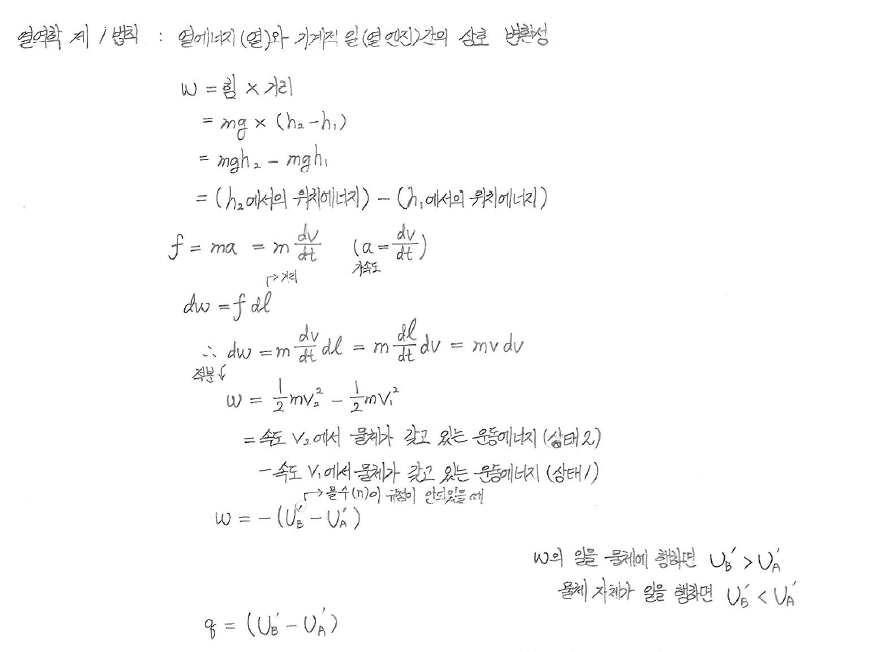 열역학 제 1법칙 : 열에너지(열)와 기계적 일(열엔진)간의 상호 변환성
w = 힘 × 거리
= mg × (h₂-h₁)
= mgh₂ - mgh₁
= (h₂에서의 위치에너지) - (h₁에서의 위치에너지)
f = ma = m dv/dt (a = dv/dt)
가속도
→거리
dw = f dl
∴ dw = m dv/dt dl = m dl/dt dv = mv dv
적분↓
w = 1/2 mv₂² - 1/2 mv₁²
= 속도 v₂에서 물체가 갖고 있는 운동에너지(상태2)
- 속도 v₁에서 물체가 갖고 있는 운동에너지(상태1)
→몰수(n)이 규정이 안되있을 때
w = -(U_B′ - U_A′)
w의 일을 물체에 행하면 U_B′ > U_A′
물체 자체가 일을 행하면 U_B′ < U_A′
q = (U_B′ - U_A′)